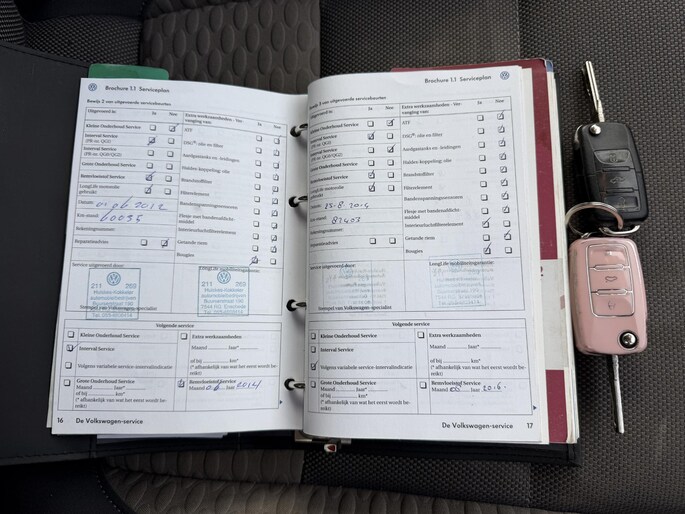 Brochure 1.1 Serviceplan
Bewijs 2 van uitgevoerde servicebeurten
Uitgevoerd is:
Ja
Nee
Extra werkzaamheden - Ver-
vanging van:
Ja
Nee
Kleine Onderhoud Service
Interval Service
(PR-nr. QG1)
Interval Service
(PR-nr. QG0/QG2)
Grote Onderhoud Service
Remvloeistof Service
LongLife motorolie
gebruikt
Datum:
2012
Km-stand:
60035
Reparatieadvies
ATF
DSG®-olie en filter
Aardgastanks en -leidingen
Haldex-koppeling: olie
Brandstoffilter
Filterelement
Bandenspanningssensoren
Flesje met bandenafdicht-
middel
Interieurluchtfilterelement
Getande riem
Bougies
Service uitgevoerd door:
LongLife mobiliteitsgarantie:
211 069
Stempel van Volkswagen-specialist
Volgende service
Kleine Onderhoud Service
Interval Service
Volgens variabele service-intervalindicatie
Grote Onderhoud Service
Maand jaar*
of bij km*
(* afhankelijk van wat het eerst wordt be-
reikt)
Extra werkzaamheden
Maand jaar*
of bij km*
(* afhankelijk van wat het eerst wordt be-
reikt)
Remvloeistof Service
Maand 06 jaar 2014
16 De Volkswagen-service
Brochure 1.1 Serviceplan
Bewijs 3 van uitgevoerde servicebeurten
Uitgevoerd is:
Ja
Nee
Extra werkzaamheden - Ver-
vanging van:
Ja
Nee
Kleine Onderhoud Service
Interval Service
(PR-nr. QG1)
Interval Service
(PR-nr. QG0/QG2)
Grote Onderhoud Service
Remvloeistof Service
LongLife motorolie
gebruikt
Km-stand:
82403
Reparatieadvies
ATF
DSG®-olie en filter
Aardgastanks en -leidingen
Haldex-koppeling: olie
Brandstoffilter
Filterelement
Bandenspanningssensoren
Flesje met bandenafdicht-
middel
Interieurluchtfilterelement
Getande riem
Bougies
Service uitgevoerd door:
LongLife mobiliteitsgarantie:
Stempel van Volkswagen-specialist
Volgende service
Kleine Onderhoud Service
Interval Service
Volgens variabele service-intervalindicatie
Grote Onderhoud Service
Maand jaar*
of bij km*
(* afhankelijk van wat het eerst wordt be-
reikt)
Extra werkzaamheden
Maand jaar*
of bij km*
(* afhankelijk van wat het eerst wordt be-
reikt)
Remvloeistof Service
Maand 06 jaar
De Volkswagen-service 17